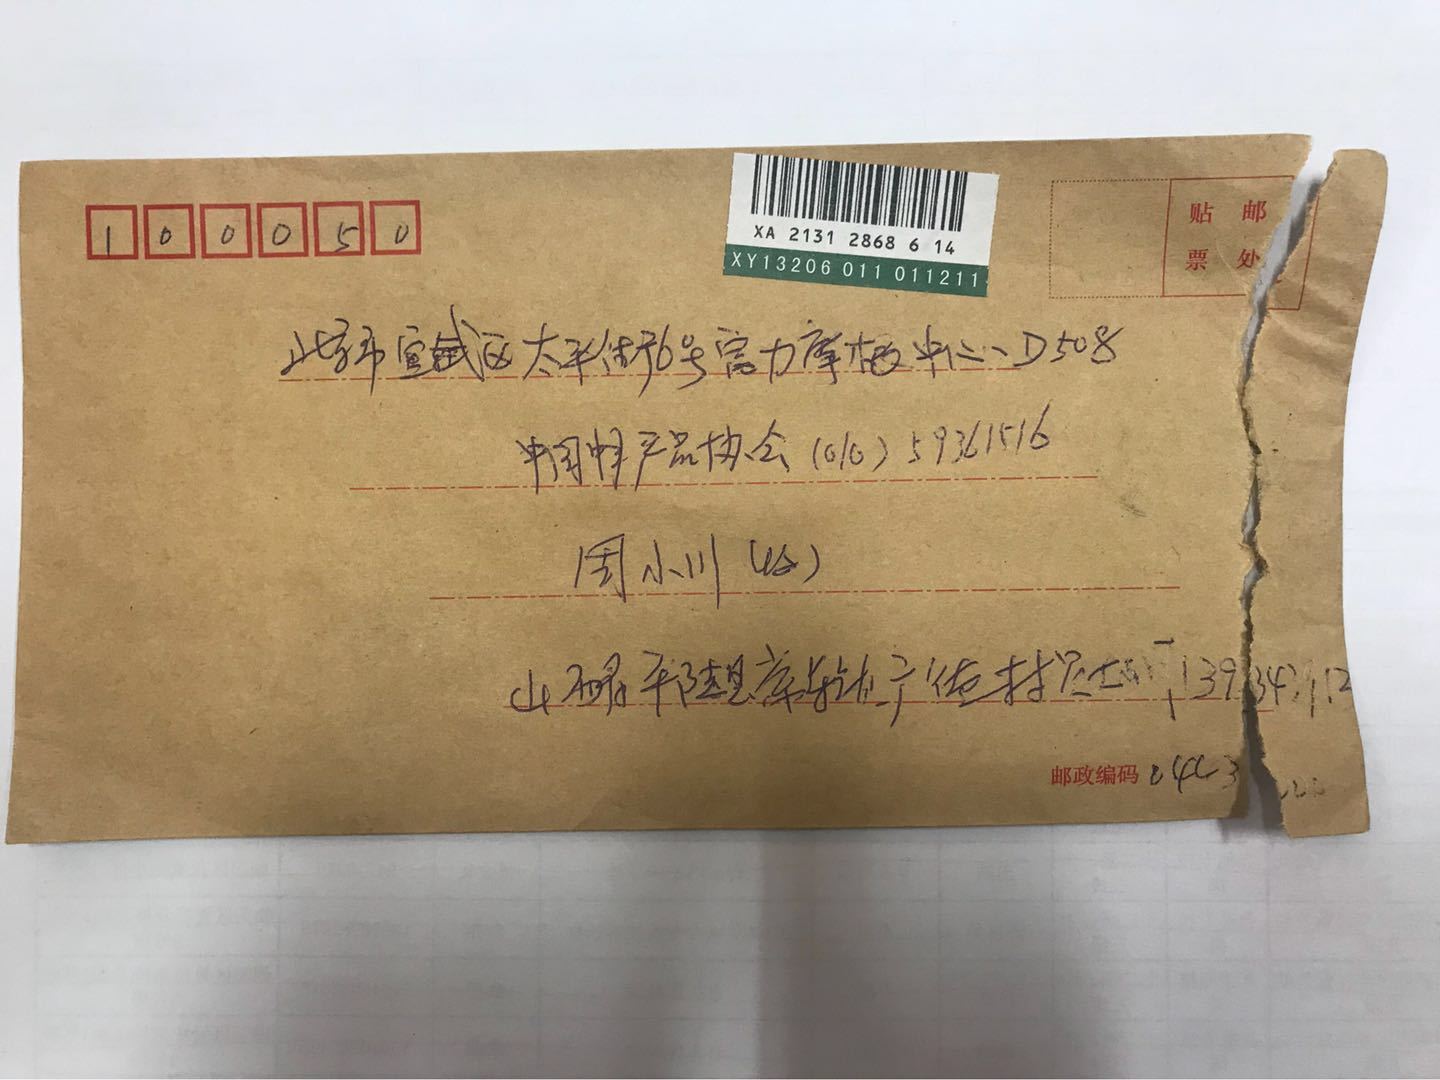 100050
XA 2131 2868 6 14
XY13206 011 011211
贴 邮
票 处
北京市宣武区太平街6号富力摩根中心D508
中国蜂产品协会(010)59361516
周小川(收)
山西省平陆县
邮政编码 044300